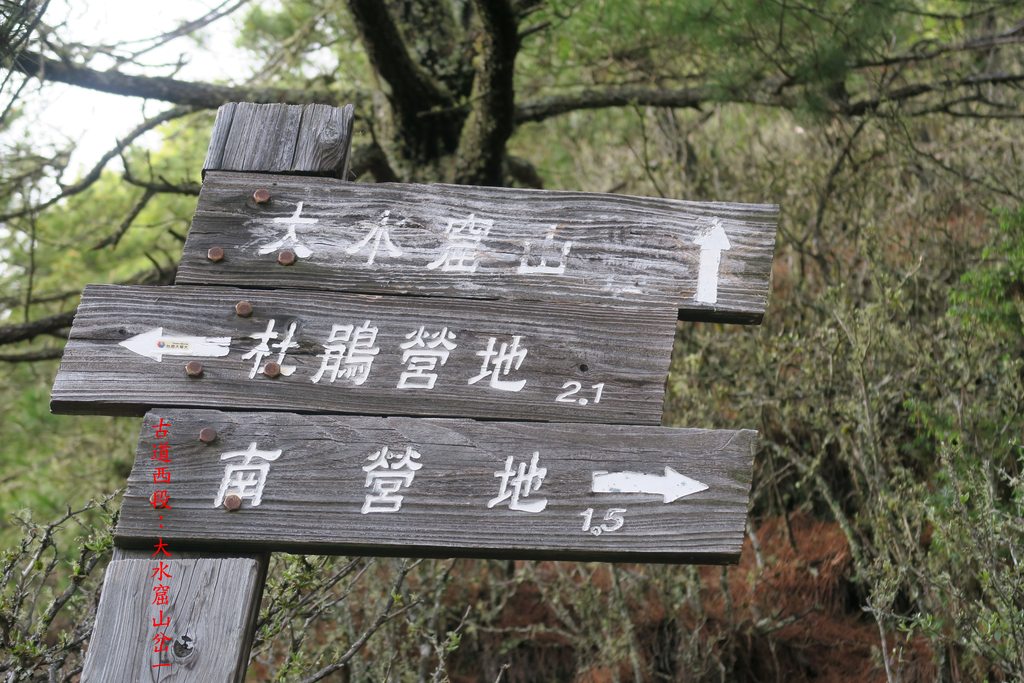 大水窟山
杜鵑營地
2.1
南營地
1.5
古道西段：大水窟山岔一